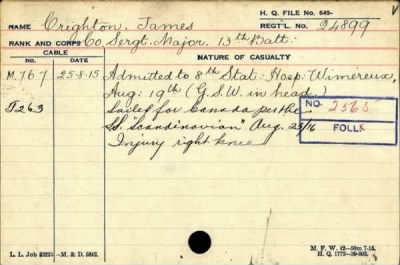 H. Q. FILE No. 649-
NAME Crighton. James REGT'L. No. 24899
RANK AND CORPS Co. Sergt. Major. 13th Batt:
CABLE
NATURE OF CASUALTY
NO. DATE
M.767 25-8-15 Admitted to 8th Stat: Hosp: Wimereux,
Aug: 19th (G.S.W. in head.)
T263 Sailed for Canada per the
SS. "Scandinavian" Aug. 25/16
Injury right knee
NO. 2565
FOLL
L. L. Job 52225—M. & D. 5842.
M. F. W. 42—50m 7-15.
H. Q. 1772-39-893.